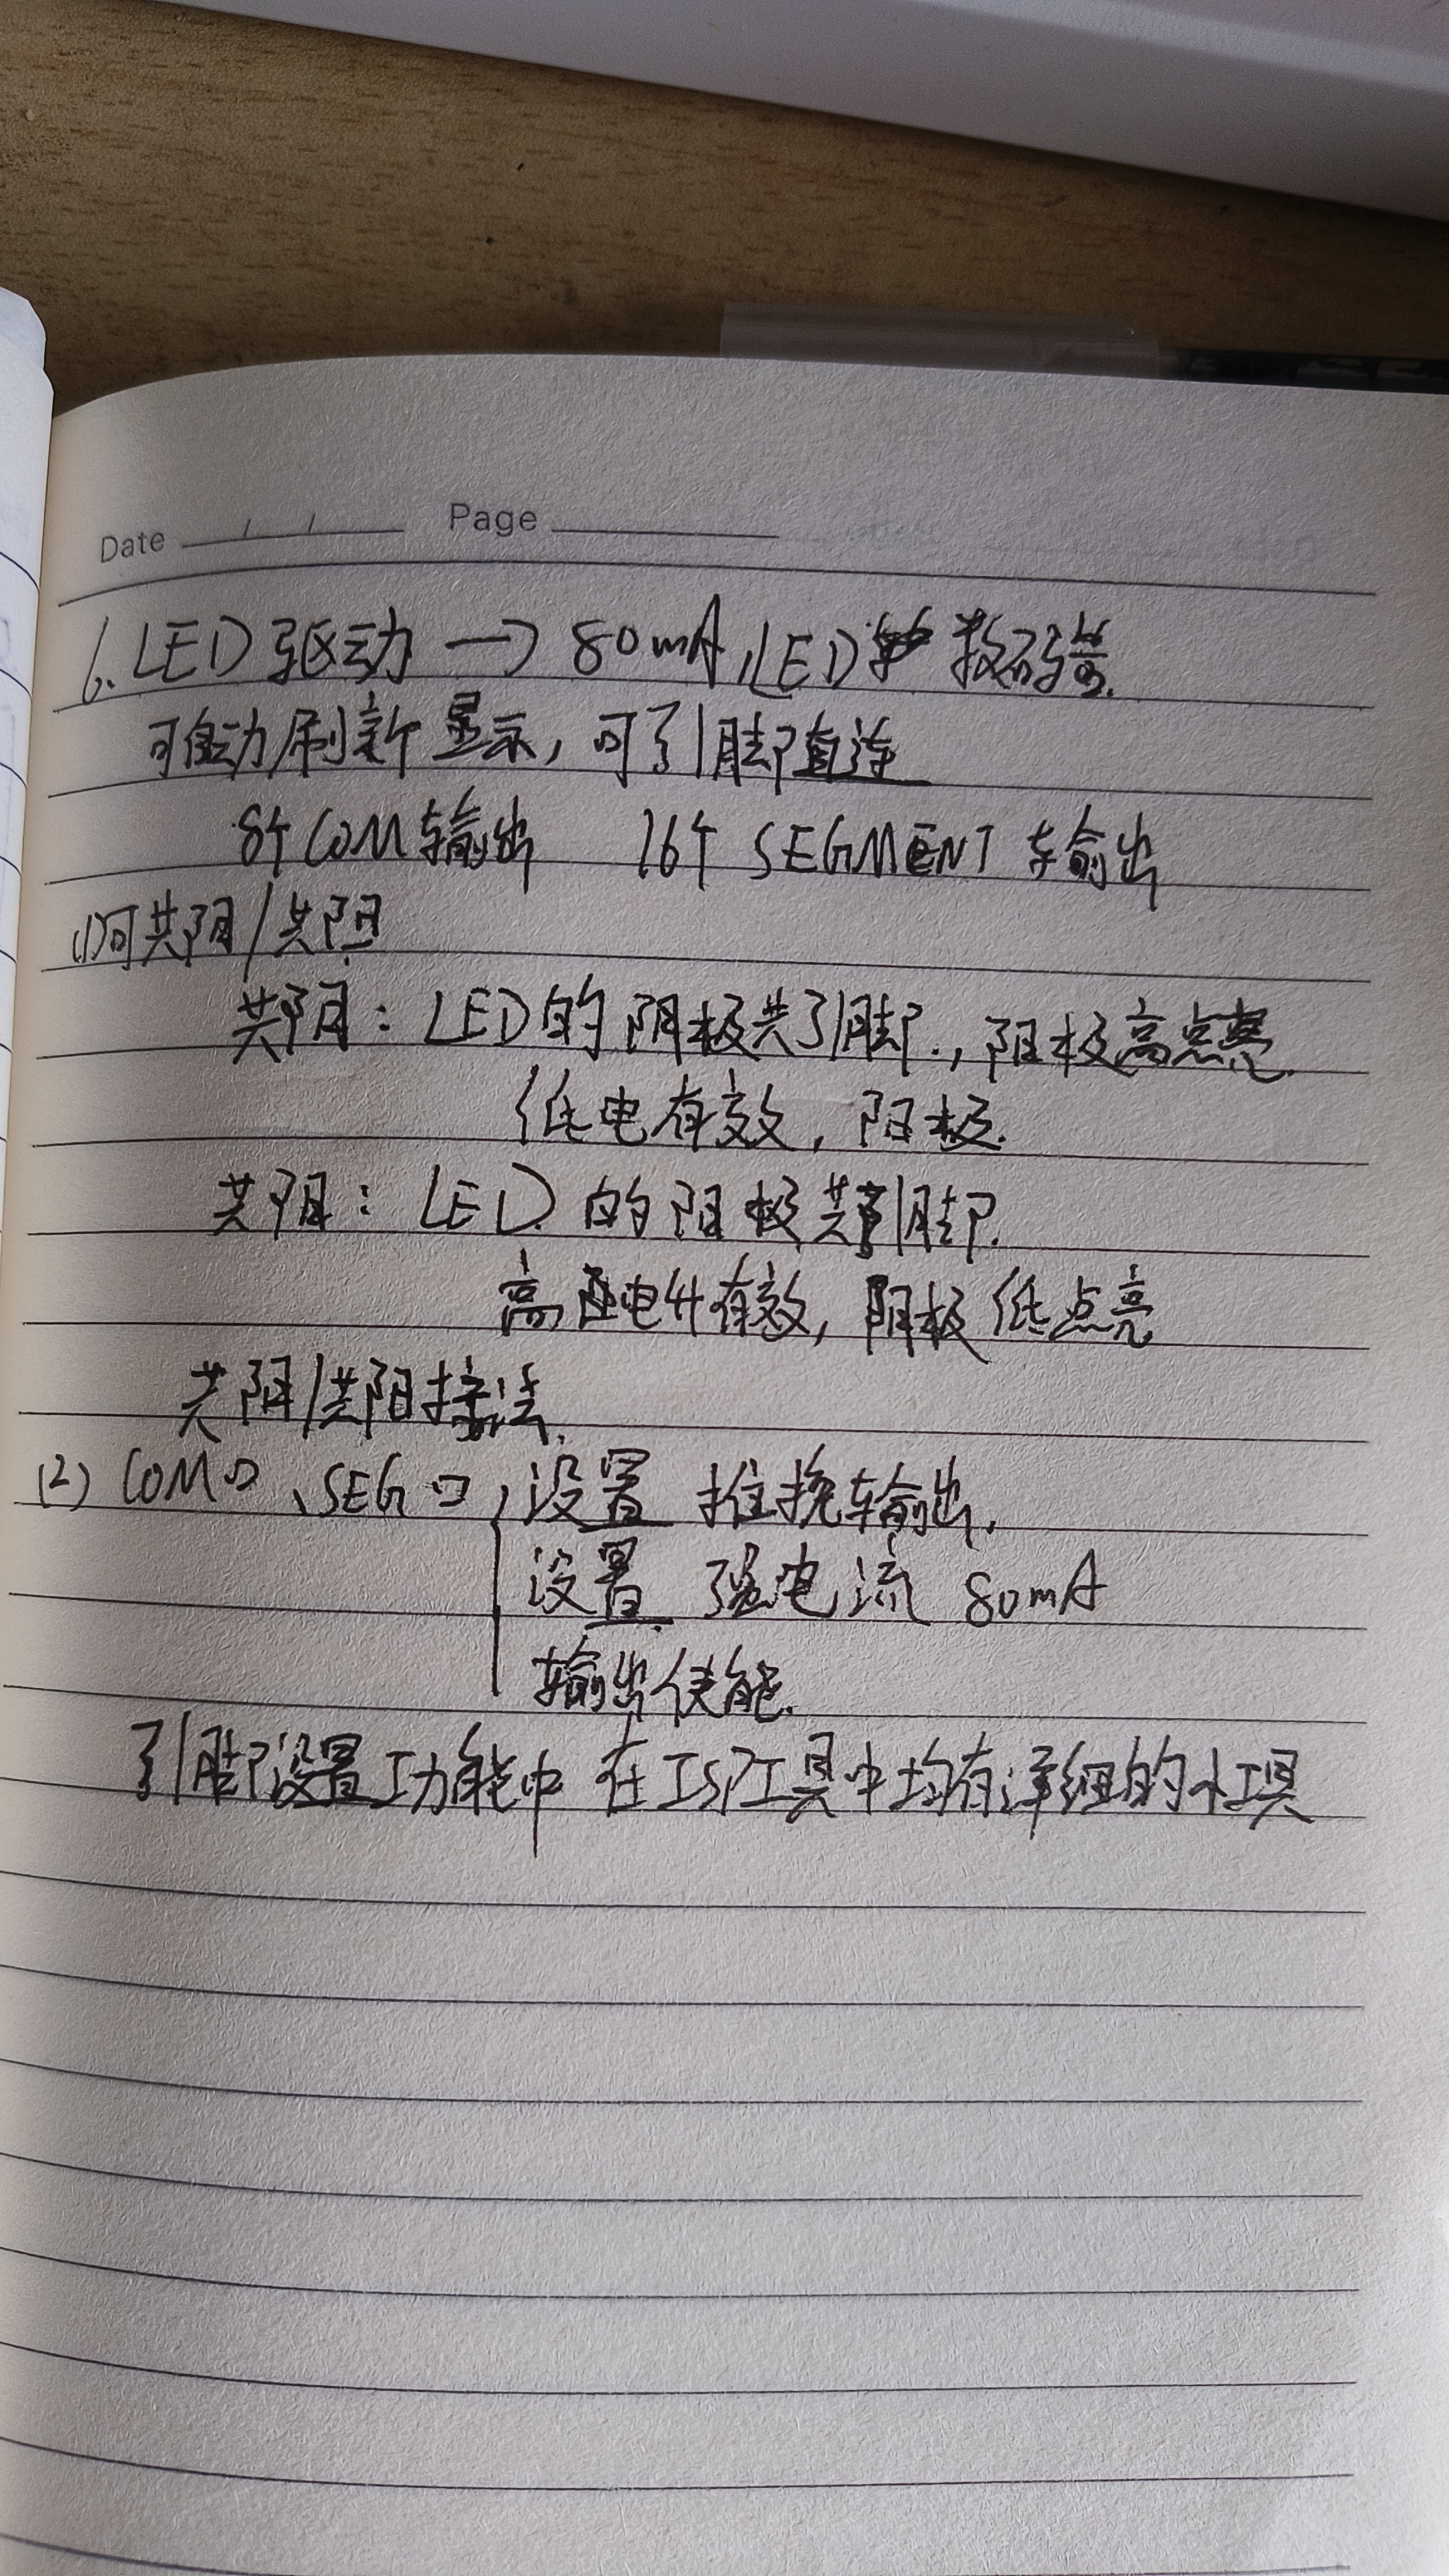 Date / / Page
6. LED驱动 → 80mA, LED 数码管.
可自动刷新显示, 可引脚直连
8个COM输出 16个 SEGMENT 输出
(1)可共阴/共阳
共阴: LED的阴极共引脚., 阳极高点亮.
低电有效, 阳极.
共阳: LED. 的阳极共引脚.
高电平有效, 阴极低点亮
共阴/共阳接法.
(2) COM口、SEG口, 设置 推挽输出.
设置 强电流 80mA
输出使能.
引脚设置功能中 在ISP工具中均有详细的小工具